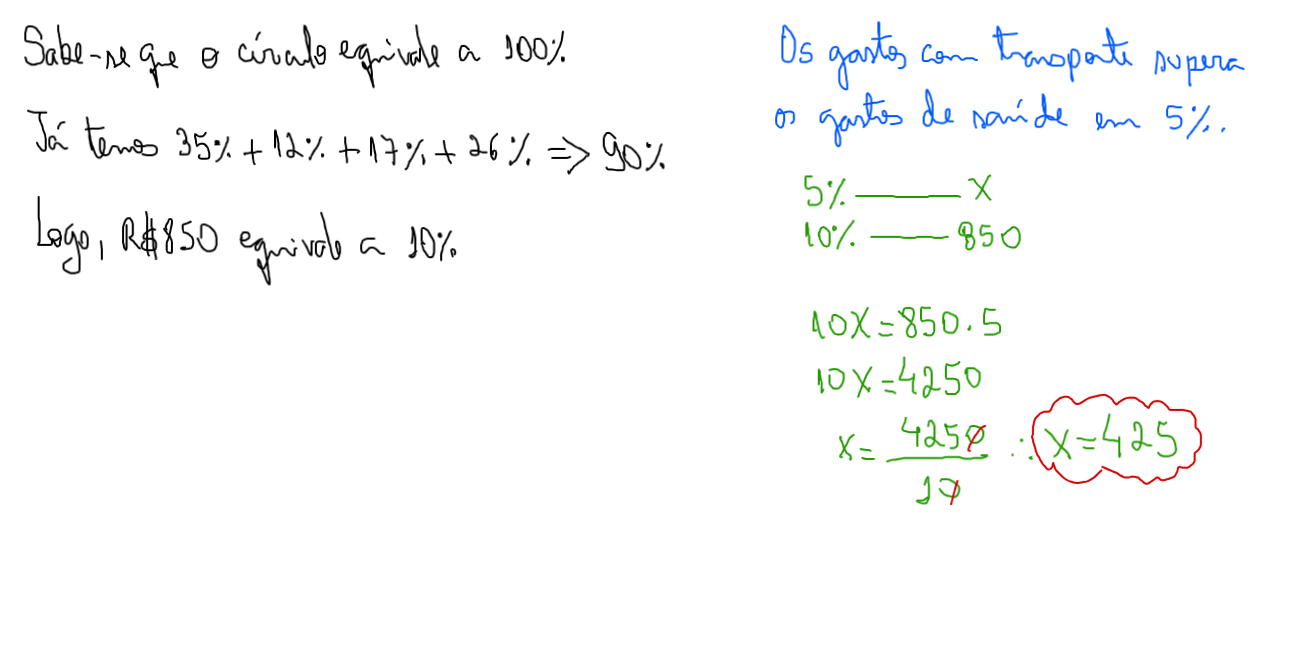 Sabe-se que o círculo equivale a 100%
Já temos 35% + 12% + 17% + 26% => 90%
Logo, R$850 equivale a 10%
Os gastos com transporte supera
os gastos de saúde em 5%.
5% —— X
10% —— 850
10X=850.5
10X=4250
x= 4250/10 ∴ x=425